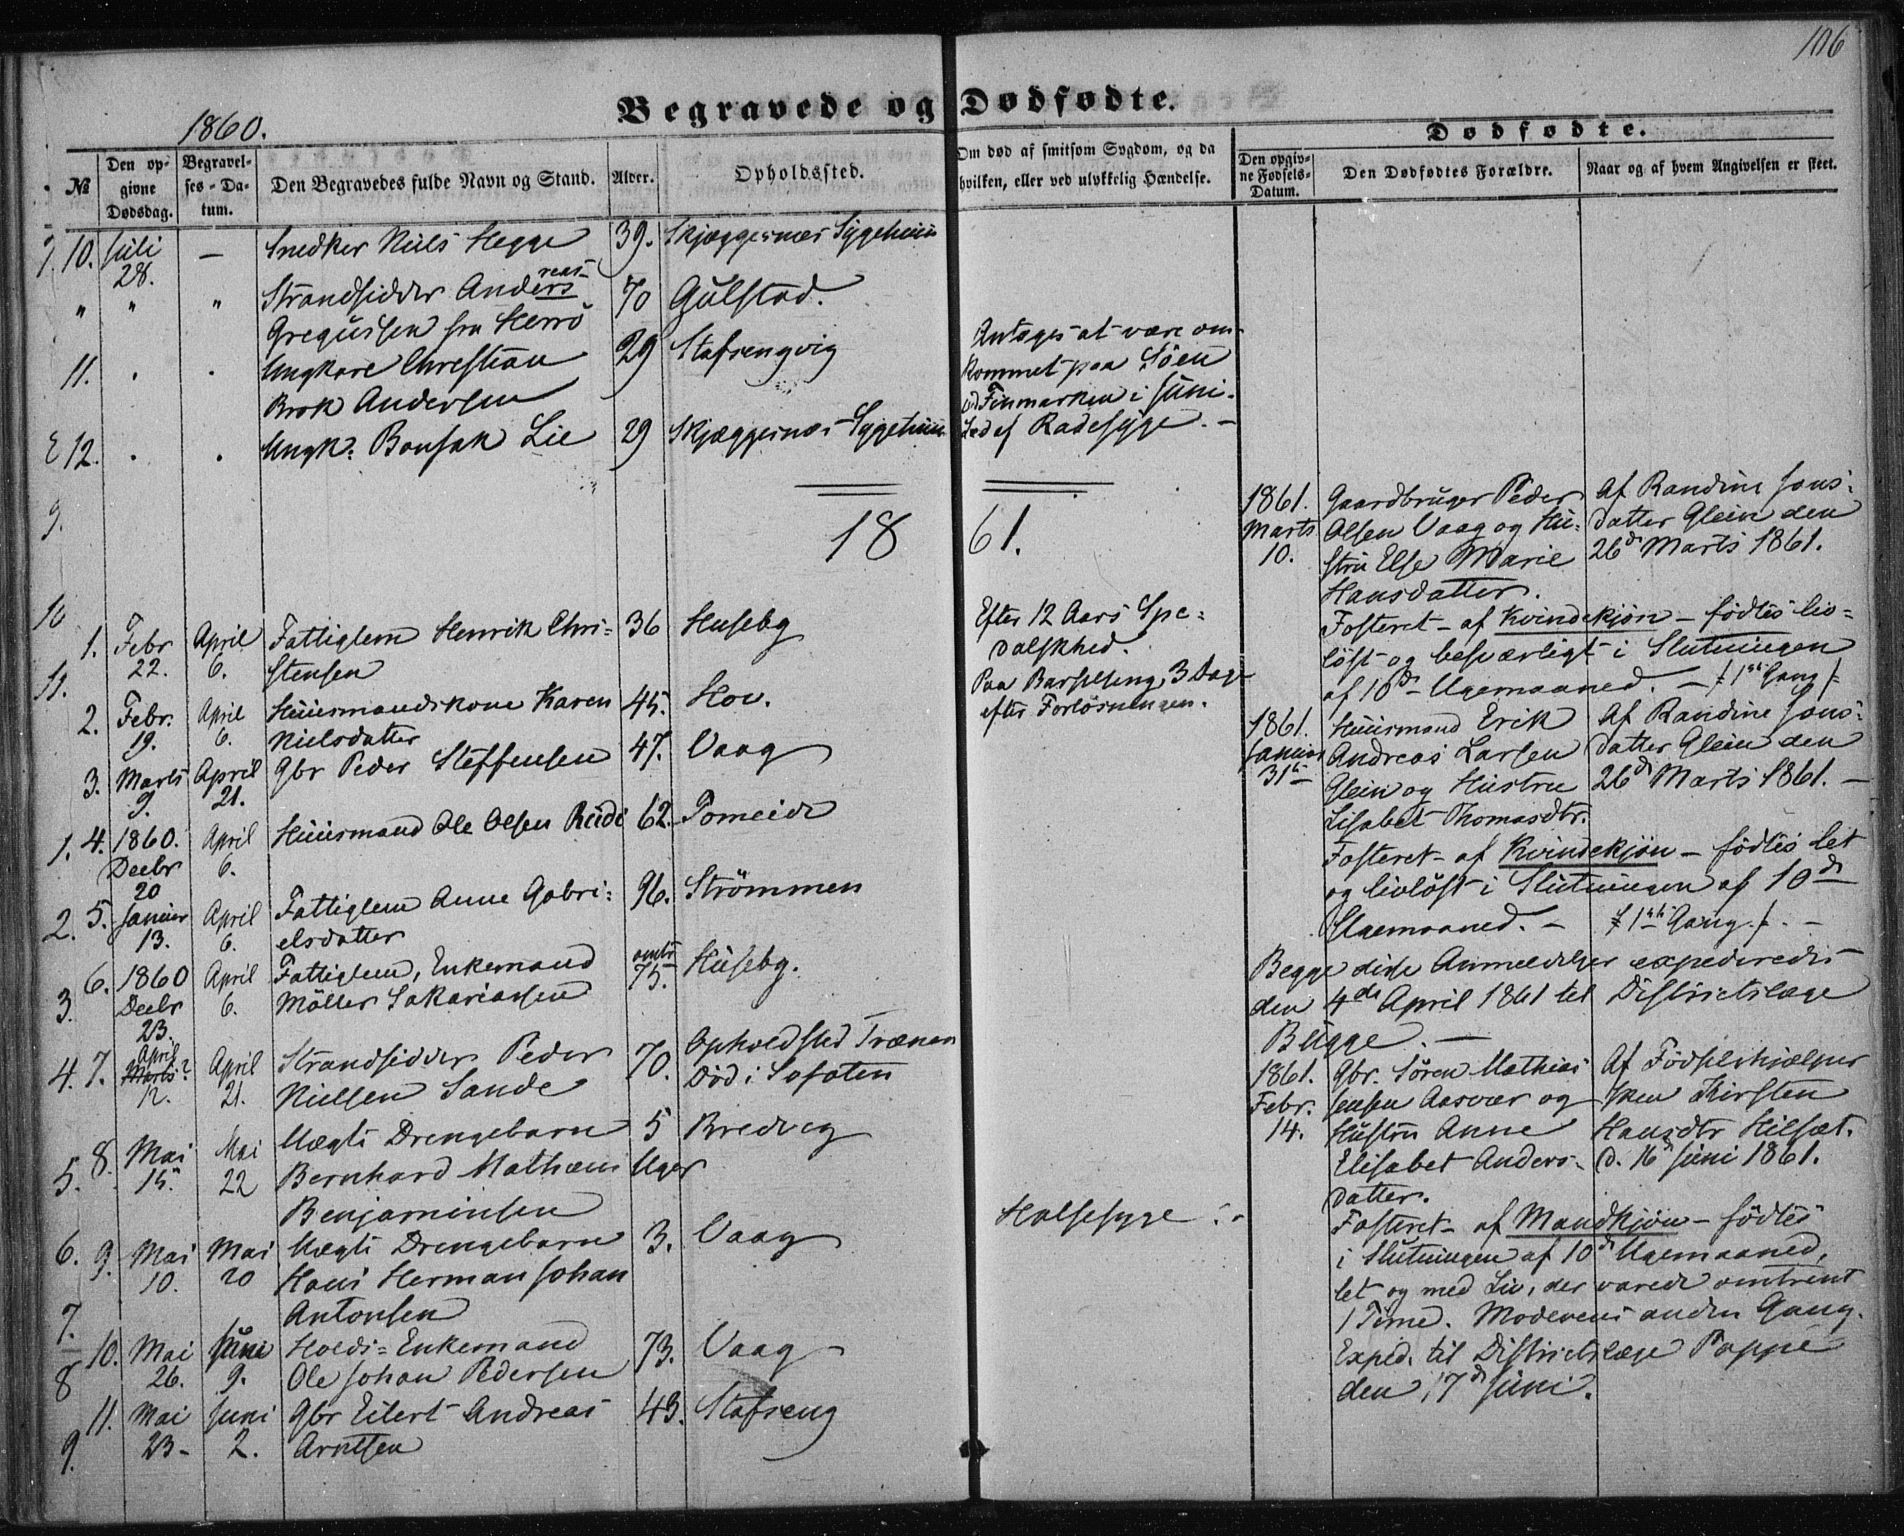 106
Begravede og Dødfødte.
1860.
№
Den op-
givne
Dødsdag.
Begravel-
ses-Da-
tum.
Den Begravedes fulde Navn og Stand.
Alder.
Opholdssted.
Om død af smitsom Sygdom, og da
hvilken, eller ved ulykkelig Hændelse.
Dødfødte.
Den opgiv-
ne Fødsels-
Datum.
Den Dødfødtes Forældre.
Naar og af hvem Angivelsen er skeet.
7. 10. Juli — Snedker Niels Hegge 39. Skjæggesnæs Sygehuus
28.
" " " Strandsidder Anders reas- 70 Gulstad.
Gregussen fra Herrö
11. . . Ungkare Christian 29 Stafsengvig Antages at være om-
Brok Andersen kommet paa Söen
ved Finmarken i Juni.
12. . . Ungk: Bonsak Lie 29 Skjæggesnæs Sygehuus Led af Radesyge. -
9.
18 61.
10
1. Febr April Fattiglem Henrik Chri- 36 Huseby Efter 12 Aars Spe-
22. 6. stensen dalskhed.
11.
2. Febr. April Huusmandskone Karen 45. Hov. Paa Barselseng, 3 Dage
19. 6. Nielsdatter efter Forlösningen.
3. Marts April Gbr Peder Steffensen 47. Vaag
9. 21.
1. 4. 1860. April Huusmand Ole Olsen Rudi 62. Tomeide
Decbr 6.
20
2. 5. Januar April Fattiglem Anne Gabri- 96. Strömmen
13. 6. elsdatter
3. 6. 1860 April Fattiglem, Enkemand omtr 75. Huseby.
Decbr 6. Möller Sakariassen
23.
4. 7. April Marts? April Strandsidder Peder 70. Opholdsted Trænen
12. 21. Nielsen Sande Död i Lofoten
5. 8. Mai Mai Uægte Drengebarn 5 Bredvig
15. 22 Bernhard Mathæus Uger
Benjaminsen
6. 9. Mai Mai Uægte Drengebarn 3. Vaag Halsesyge.
10. 20 Hans Herman Johan
7. Antonsen
8 10. Mai Juni Holds-Enkemand 73. Vaag
26. 9. Ole Johan Pedersen
9. 11. Mai Juni Gbr Eilert Andreas 43. Stafseng
23- 2. Arntsen
1861. Gaardbruger Peder Af Randine Jons-
Marts Olsen Vaag og Hu- datter Glein den
10. stru Else Marie 26de Marts 1861.
Hansdatter.
Fosteret - af Kvindekjön - födtes liv-
löst og besværligt i Slutningen
af 10de Ugemaaned. - /: 1ste Gang :/
1861. Huusmand Erik Af Randine Jons-
Januar Andreas Larsen datter Glein den
31te Glein og Hustru 26de Marts 1861. -
Lisabet Thomasdtr.
Fosteret - af Kvindekjön - födtes let
og livlöst i Slutningen af 10de
Ugemaaned. - /: 1ste Gang :/ . -
Begge disse Anmeldelser expederedes
den 4de April 1861 til Districtslæge
Bugge. -
1861. Gbr. Sören Mathias Af Födselshjælper
Febr. Jensen Aasvær og sken Kirsten
14. Hustru Anne Hansdtr Hilsæt.
Elisabet Anders- d. 16 Juni 1861.
datter.
Fosteret - af Mandkjön - födtes
i Slutningen af 10de Ugemaaned,
let og med Liv, der varede omtrent
1 Time. Moderens anden Gang.
Exped. til Districtslæge Poppe
den 17de Juni.